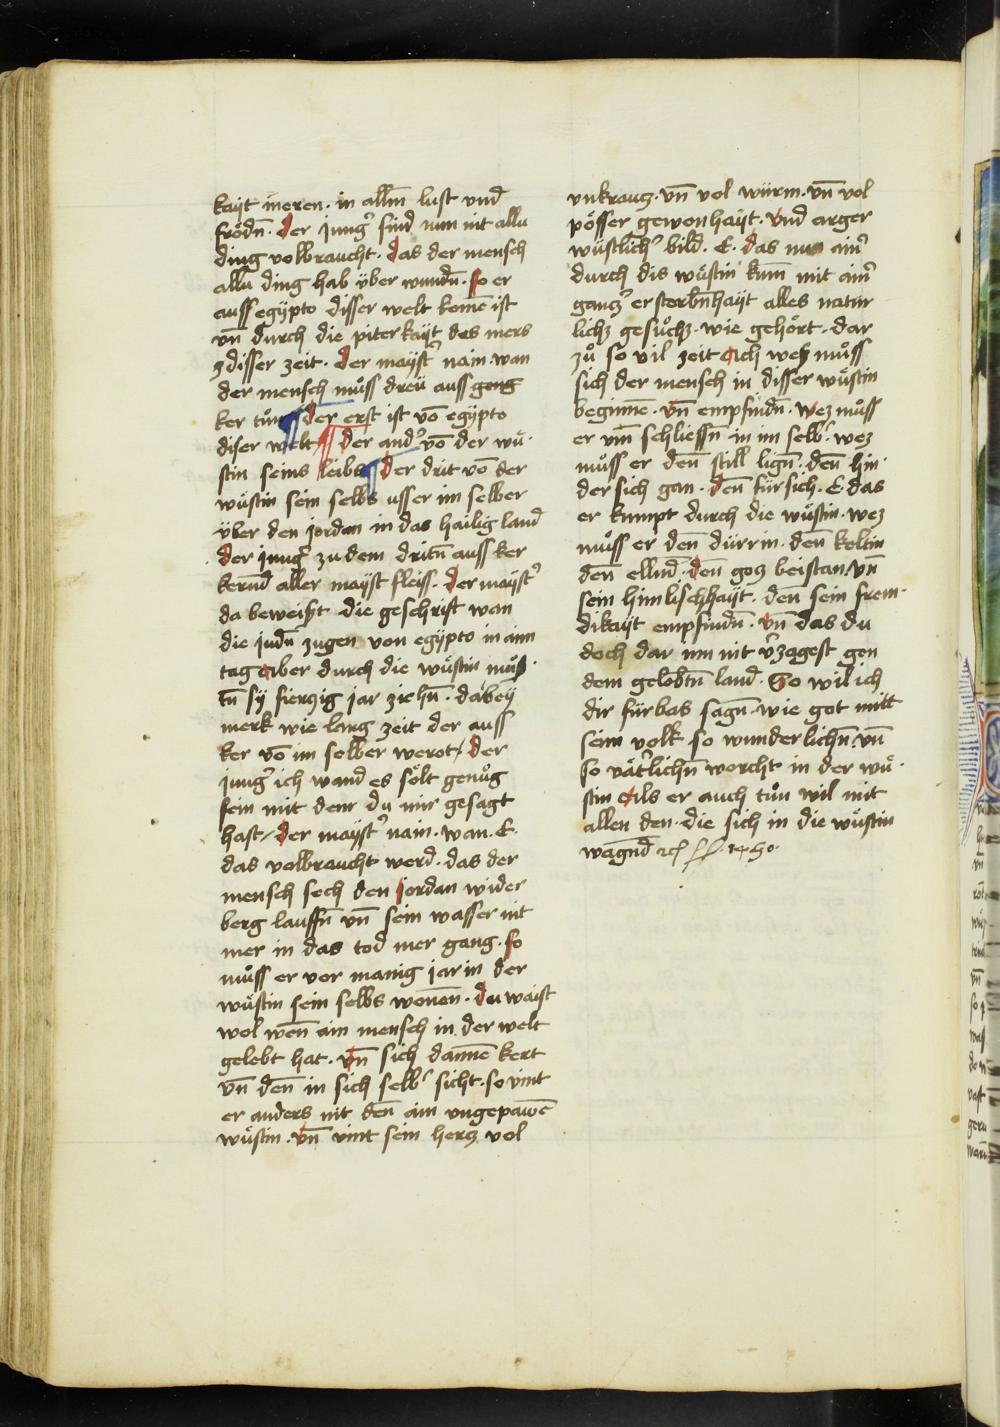 kaẏt meren · in allm̄ lust vnd
frödn̄ · der Jung᷑ sind nun nit allu
ding volbraucht · das der mensch
allu ding hab über wundn̄ · so er
auss egÿpto disser welt komē ist
vn̄ durch die piterkaÿt des mers
disser zeit · der maÿst᷑ nain · wan
der mensch müss dreü auss geng
ker tůn ¶ der erst ist vō egÿpto
diser welt ¶ der and᷑ vō der wü
stin seins leibs ¶ der drit vō der
wüstin sein selbs usser im selber
über den jordan in das hailig land
der jung᷑ zu dem dritn̄ auss ker
kerud aller maÿst fleiss · der maÿst᷑
da beweist die geschrift wan
die judn̄ zugen von egÿpto in aim
tag aber durch die wüstin müs
tn̄ sÿ fierzig jar ziehn̄ · dabeÿ
merk wie lang zeit der auss
ker vō im selber werot / der
jung᷑ ich wand es sölt genůg
sein mit dem du mir gesagt
hast / der maÿst᷑ nain · wan · E ·
das volbraucht werd · das der
mensch sech den jordan wider
berg lauffn̄ vn̄ sein wasser nit
mer in das tod mer gang · so
müss er vor manig jar in der
wüstin sein selbs wonen̄ · du waist
wol wen̄ ain mensch in der welt
gelebt hat · vn̄ sich dannē kert
vn̄ den̄ in sich selb᷑ sicht · so vint
er anders nit den̄ ain vngepawē
wüstin · vn̄ vint sein hercz vol
vnkraug · vn̄ vol würm · vn̄ vol
pösser gewonhaÿt · vnd arger
wüstlich᷑ bild · E · das nun ain᷑
durch dis wüstin kum̄ mit ain᷑
gancz᷑ erstorbn̄hayt alles natur
lichz gesüchz · wie gehört · dar
zů so vil zeit Ach wesz müss
sich der mensch in disser wüstin
beginnē · vn̄ empfindn̄ · wez müss
er vm̄ schliessn̄ in im selb᷑ · wez
müss er den̄ still lign̄ · den̄ hin
der sich gan · den̄ für sich · E · das
er kumpt durch die wüstin · wez
müss er den̄ dürrm · den̄ keltin
den̄ ellnd · den̄ gocz beistan · vn̄
sein himlischhaÿt · den sein frem
dikaÿt empfindn̄ · vn̄ das du
doch dar um nit v᷑zagest gen
dem gelobtn̄ land · So wil ich
dir fürbas sagn̄ · wie got mitt
seim volk so wunderlichn̄ · vn̄
so vät᷑lichn̄ worcht in der wü
stin Als er auch tůn wil mit
allen den · die sich in die wüstin
wagnd ⁊cꝭ